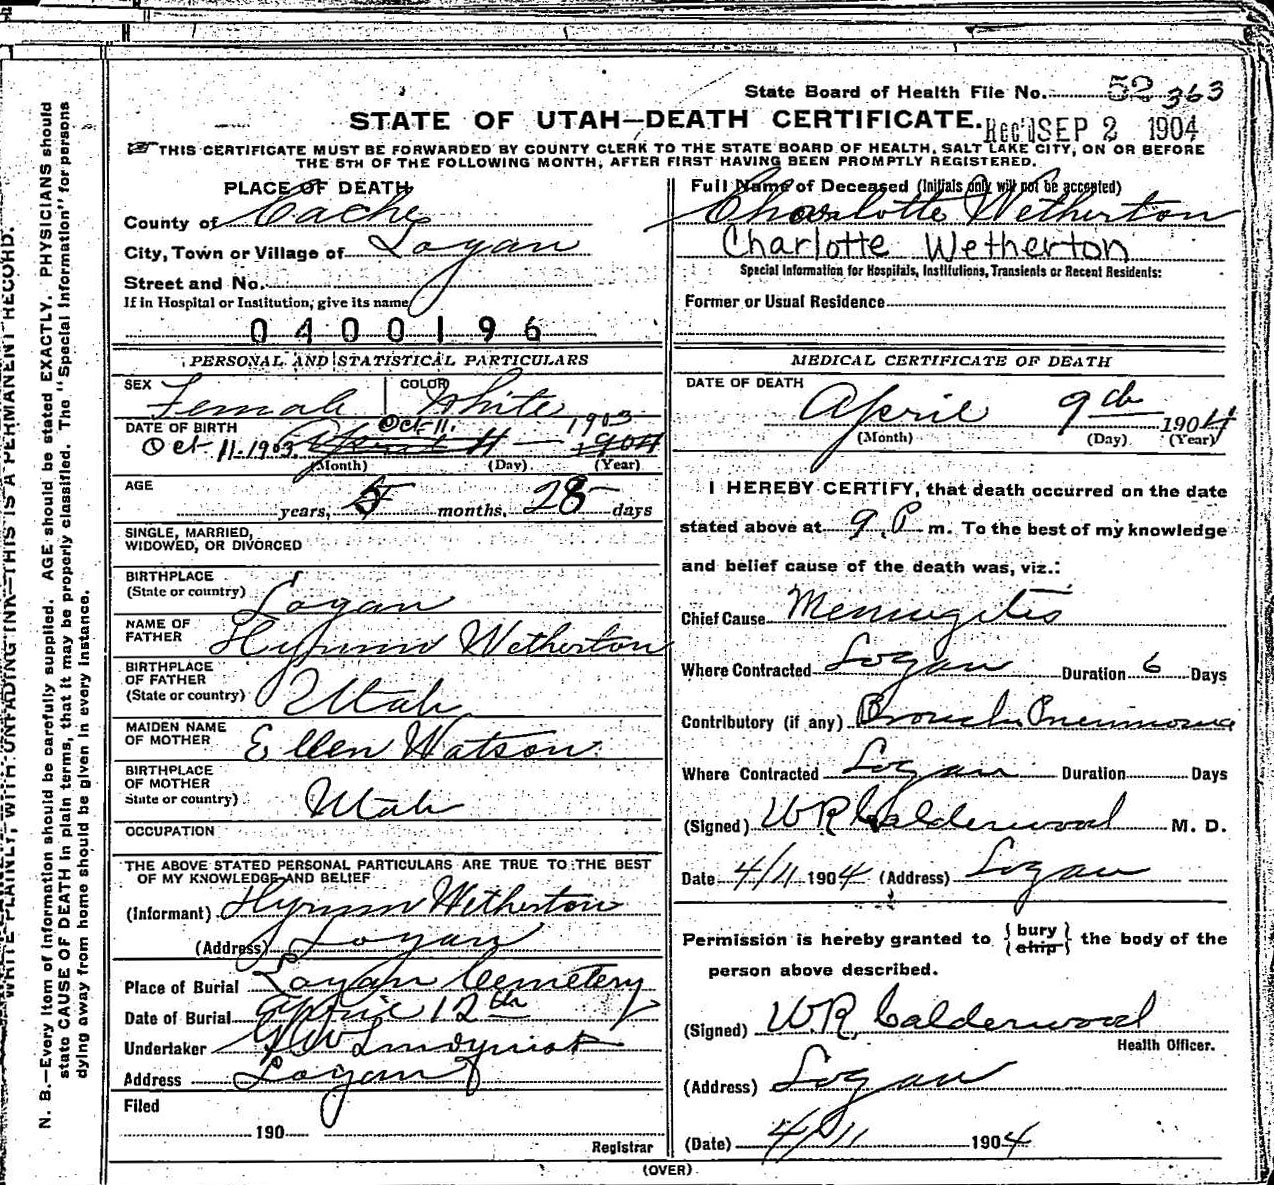 State Board of Health File No. 52 363
STATE OF UTAH—DEATH CERTIFICATE.
Rec'd SEP 2 1904
☞ THIS CERTIFICATE MUST BE FORWARDED BY COUNTY CLERK TO THE STATE BOARD OF HEALTH, SALT LAKE CITY, ON OR BEFORE
THE 5TH OF THE FOLLOWING MONTH, AFTER FIRST HAVING BEEN PROMPTLY REGISTERED.
PLACE OF DEATH
County of Cache
City, Town or Village of Logan
Street and No.
If in Hospital or Institution, give its name
0400196
PERSONAL AND STATISTICAL PARTICULARS
SEX Female COLOR White
DATE OF BIRTH Oct. 11. 1903
Oct. 11. 1903 April 11 — 1904
(Month) (Day) (Year)
AGE
years, 5 months, 28 days
SINGLE, MARRIED,
WIDOWED, OR DIVORCED
BIRTHPLACE
(State or country) Logan
NAME OF
FATHER Hyrum Wetherton
BIRTHPLACE
OF FATHER
(State or country) Utah
MAIDEN NAME
OF MOTHER Ellen Watson
BIRTHPLACE
OF MOTHER
State or country) Utah
OCCUPATION
THE ABOVE STATED PERSONAL PARTICULARS ARE TRUE TO THE BEST
OF MY KNOWLEDGE AND BELIEF
(Informant) Hyrum Wetherton
(Address) Logan
Place of Burial Logan Cemetery
Date of Burial April 12th
Undertaker
Address Logan
Filed
190
Registrar
Full Name of Deceased (Initials only will not be accepted)
Charlotte Wetherton
Charlotte Wetherton
Special Information for Hospitals, Institutions, Transients or Recent Residents:
Former or Usual Residence
MEDICAL CERTIFICATE OF DEATH
DATE OF DEATH
April 9th 1904
(Month) (Day) (Year)
I HEREBY CERTIFY, that death occurred on the date
stated above at 9 P m. To the best of my knowledge
and belief cause of the death was, viz.:
Chief Cause Meningitis
Where Contracted Logan Duration 6 Days
Contributory (if any) Broncho Pneumonia
Where Contracted Logan Duration Days
(Signed) WR Calderwood M. D.
Date 4/11 1904 (Address) Logan
Permission is hereby granted to {bury
ship} the body of the
person above described.
(Signed) WR Calderwood
Health Officer.
(Address) Logan
(Date) 4/11 1904
(OVER)
WRITE PLAINLY, WITH UNFADING INK—THIS IS A PERMANENT RECORD.
N. B.—Every item of information should be carefully supplied. AGE should be stated EXACTLY. PHYSICIANS should
state CAUSE OF DEATH in plain terms, that it may be properly classified. The "Special Information" for persons
dying away from home should be given in every instance.